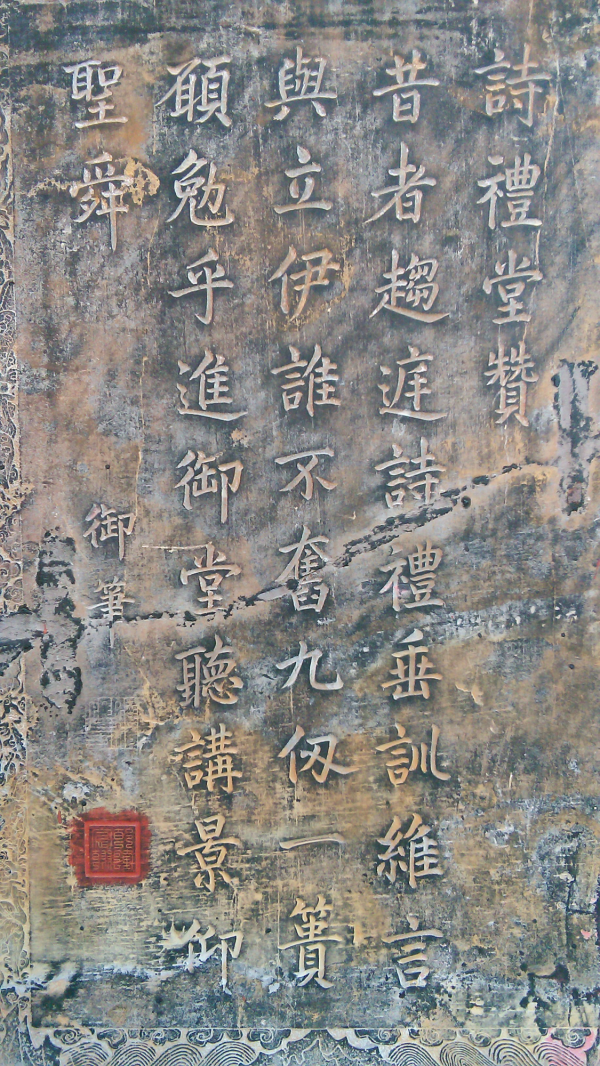 詩禮堂贊
昔者趨庭詩禮垂訓維言
與立伊誰不奮九仞一簣
願勉乎進御堂聽講景仰
聖舜
御筆